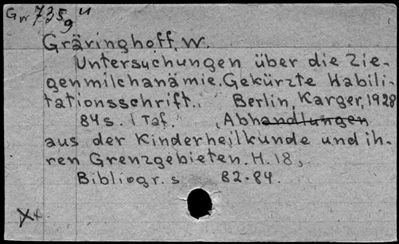 Gw 735 u
9
Gräringhoff, W.
Untersuchungen über die Zie-
genmilchanämie. Gekürzte Habili-
tationsschrift. Berlin, Karger, 1928
84 s. 1 Taf. Abhandlungen
aus der Kinderheilkunde und ih-
ren Grenzgebieten. H. 18,
Bibliogr. s. 82-84.